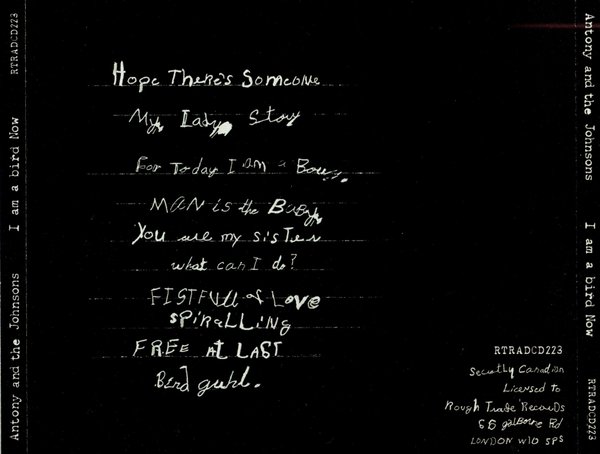 RTRADCD223
I am a bird Now
Antony and the Johnsons
Hope There's Someone
My Lady Story
For Today I am a Boy
MAN is the Baby
You are my sister
what can I do?
FISTFUll of LOVE
SPiRaLLING
FREE AT LAST
Bird guhl.
RTRADCD223
Secretly Canadian
Licensed to
Rough Trade Records
66 golborne Rd
LONDON W10 5PS
Antony and the Johnsons
I am a bird Now
RTRADCD223